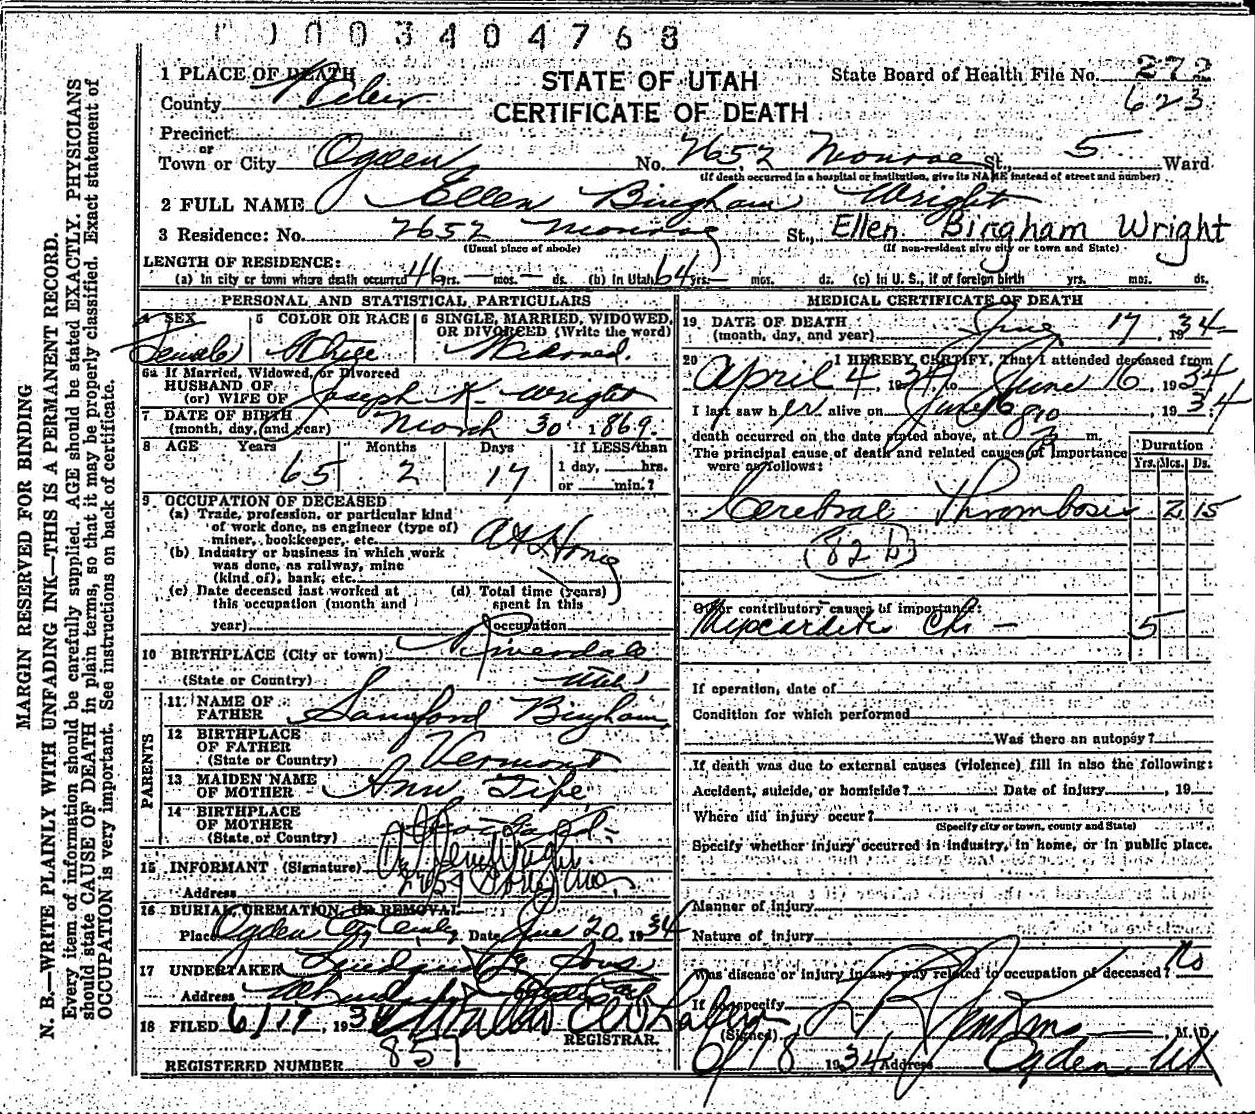 0003404768
1 PLACE OF DEATH
STATE OF UTAH
CERTIFICATE OF DEATH
State Board of Health File No. 272
623
County Weber
Precinct
or
Town or City Ogden No. 2652 Monroe St., 5 Ward
(If death occurred in a hospital or institution, give its NAME instead of street and number)
2 FULL NAME Ellen Bingham Wright
3 Residence: No. 2652 Monroe St., Ellen Bingham Wright
(Usual place of abode) (If non-resident give city or town and State)
LENGTH OF RESIDENCE:
(a) In city or town where death occurred 46 yrs. — mos. — ds. (b) In Utah 64 yrs. — mos. ds. (c) In U. S., if of foreign birth yrs. mos. ds.
PERSONAL AND STATISTICAL PARTICULARS
4 SEX Female
5 COLOR OR RACE White
6 SINGLE, MARRIED, WIDOWED, OR DIVORCED (Write the word) Widowed.
6a If Married, Widowed, or Divorced
HUSBAND OF
(or) WIFE OF Joseph K. Wright
7 DATE OF BIRTH
(month, day, and year) March 30 1869
8 AGE Years Months Days If LESS than
65 2 17 1 day, hrs.
or min.?
9 OCCUPATION OF DECEASED
(a) Trade, profession, or particular kind
of work done, as engineer (type of)
miner, bookkeeper, etc. At Home
(b) Industry or business in which work
was done, as railway, mine
(kind of), bank, etc.
(c) Date deceased last worked at
this occupation (month and
year)
(d) Total time (years)
spent in this
occupation
10 BIRTHPLACE (City or town) Riverdale
(State or Country) Utah
PARENTS
11 NAME OF
FATHER Sanford Bingham
12 BIRTHPLACE
OF FATHER
(State or Country) Vermont
13 MAIDEN NAME
OF MOTHER Ann
14 BIRTHPLACE
OF MOTHER
(State or Country)
15 INFORMANT (Signature) Wright
Address
16 BURIAL, CREMATION, OR REMOVAL
Place Ogden City Date June 20, 1934
17 UNDERTAKER Lindquist & Sons
Address
18 FILED 6/19, 1934
REGISTRAR.
REGISTERED NUMBER 857
MEDICAL CERTIFICATE OF DEATH
19 DATE OF DEATH
(month, day, and year) June 17 1934
20 I HEREBY CERTIFY, That I attended deceased from
April 4, 1934, to June 16, 1934
I last saw her alive on June 16, 1934
death occurred on the date stated above, at m.
The principal cause of death and related causes of importance
were as follows:
Duration
Yrs. Mos. Ds.
Cerebral Thrombosis 2 15
(82 b)
Other contributory causes of importance:
Myocarditis Chr — 5
If operation, date of
Condition for which performed
Was there an autopsy?
If death was due to external causes (violence) fill in also the following:
Accident, suicide, or homicide? Date of injury , 19
Where did injury occur?
(Specify city or town, county and State)
Specify whether injury occurred in industry, in home, or in public place.
Manner of injury
Nature of injury
Was disease or injury in any way related to occupation of deceased? No
If so, specify
(Signed) Jenkins M. D.
6/18 1934 Address Ogden, Ut
MARGIN RESERVED FOR BINDING
N. B.—WRITE PLAINLY WITH UNFADING INK—THIS IS A PERMANENT RECORD.
Every item of information should be carefully supplied. AGE should be stated EXACTLY. PHYSICIANS
should state CAUSE OF DEATH in plain terms, so that it may be properly classified. Exact statement of
OCCUPATION is very important. See instructions on back of certificate.